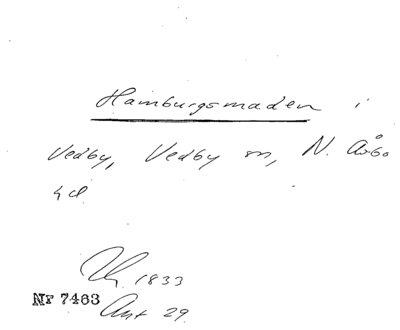 Hamburgsmaden i
Vedby, Vedby sn, N. Åsbo
hd
1833
Nr 7463
Ant 29